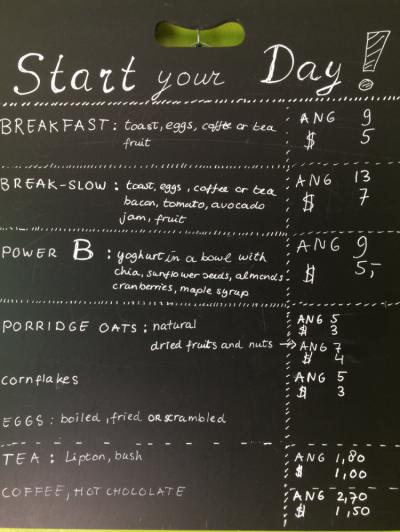 Start your Day!
BREAKFAST: toast, eggs, coffee or tea ANG 9
fruit $ 5
BREAK-SLOW: toast, eggs, coffee or tea ANG 13
bacon, tomato, avocado $ 7
jam, fruit
POWER B: yoghurt in a bowl with ANG 9
chia, sunflower seeds, almonds $ 5,-
cranberries, maple syrup
PORRIDGE OATS: natural ANG 5
$ 3
dried fruits and nuts → ANG 7
$ 4
cornflakes ANG 5
$ 3
EGGS: boiled, fried OR scrambled
TEA: Lipton, bush ANG 1,80
$ 1,00
COFFEE, HOT CHOLOLATE ANG 2,70
$ 1,50